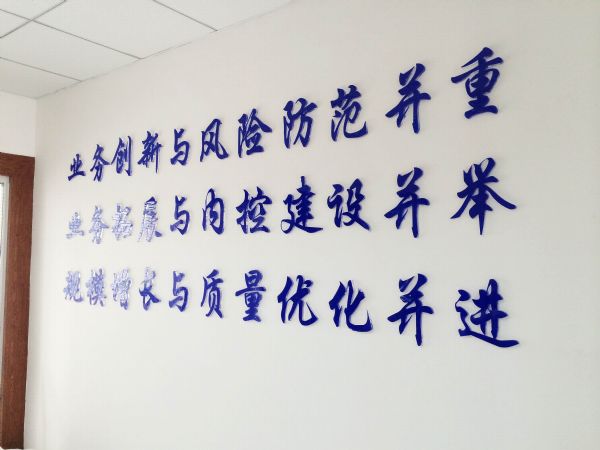 业务创新与风险防范并重
业务拓展与内控建设并举
规模增长与质量优化并进